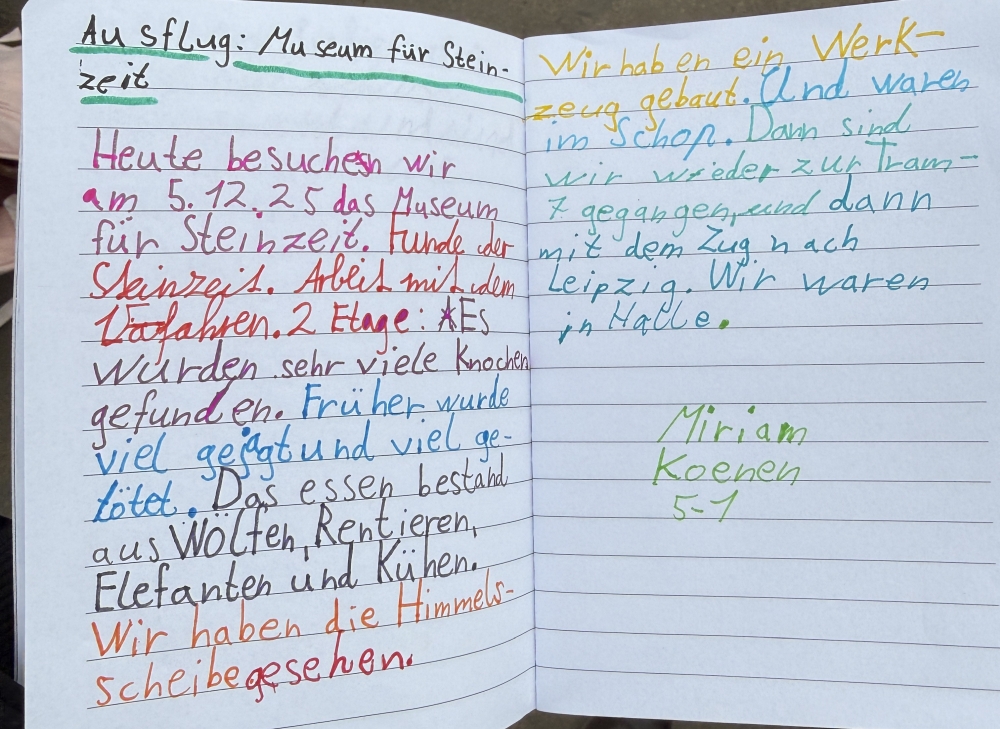 Ausflug: Museum für Stein-
zeit
Heute besuchen wir
am 5.12.25 das Museum
für Steinzeit. Funde der
Steinzeit. Arbeit mit dem
fahren. 2 Etage: *Es
wurden sehr viele Knochen
gefunden. Früher wurde
viel gejagt und viel ge-
tötet. Das essen bestand
aus Wölfen, Rentieren,
Elefanten und Kühen.
Wir haben die Himmels-
scheibe gesehen.
Wir haben ein Werk-
zeug gebaut. Und waren
im Schop. Dann sind
wir wieder zur Tram-
7 gegangen, und dann
mit dem Zug nach
Leipzig. Wir waren
in Halle.
Miriam
Koenen
5-1